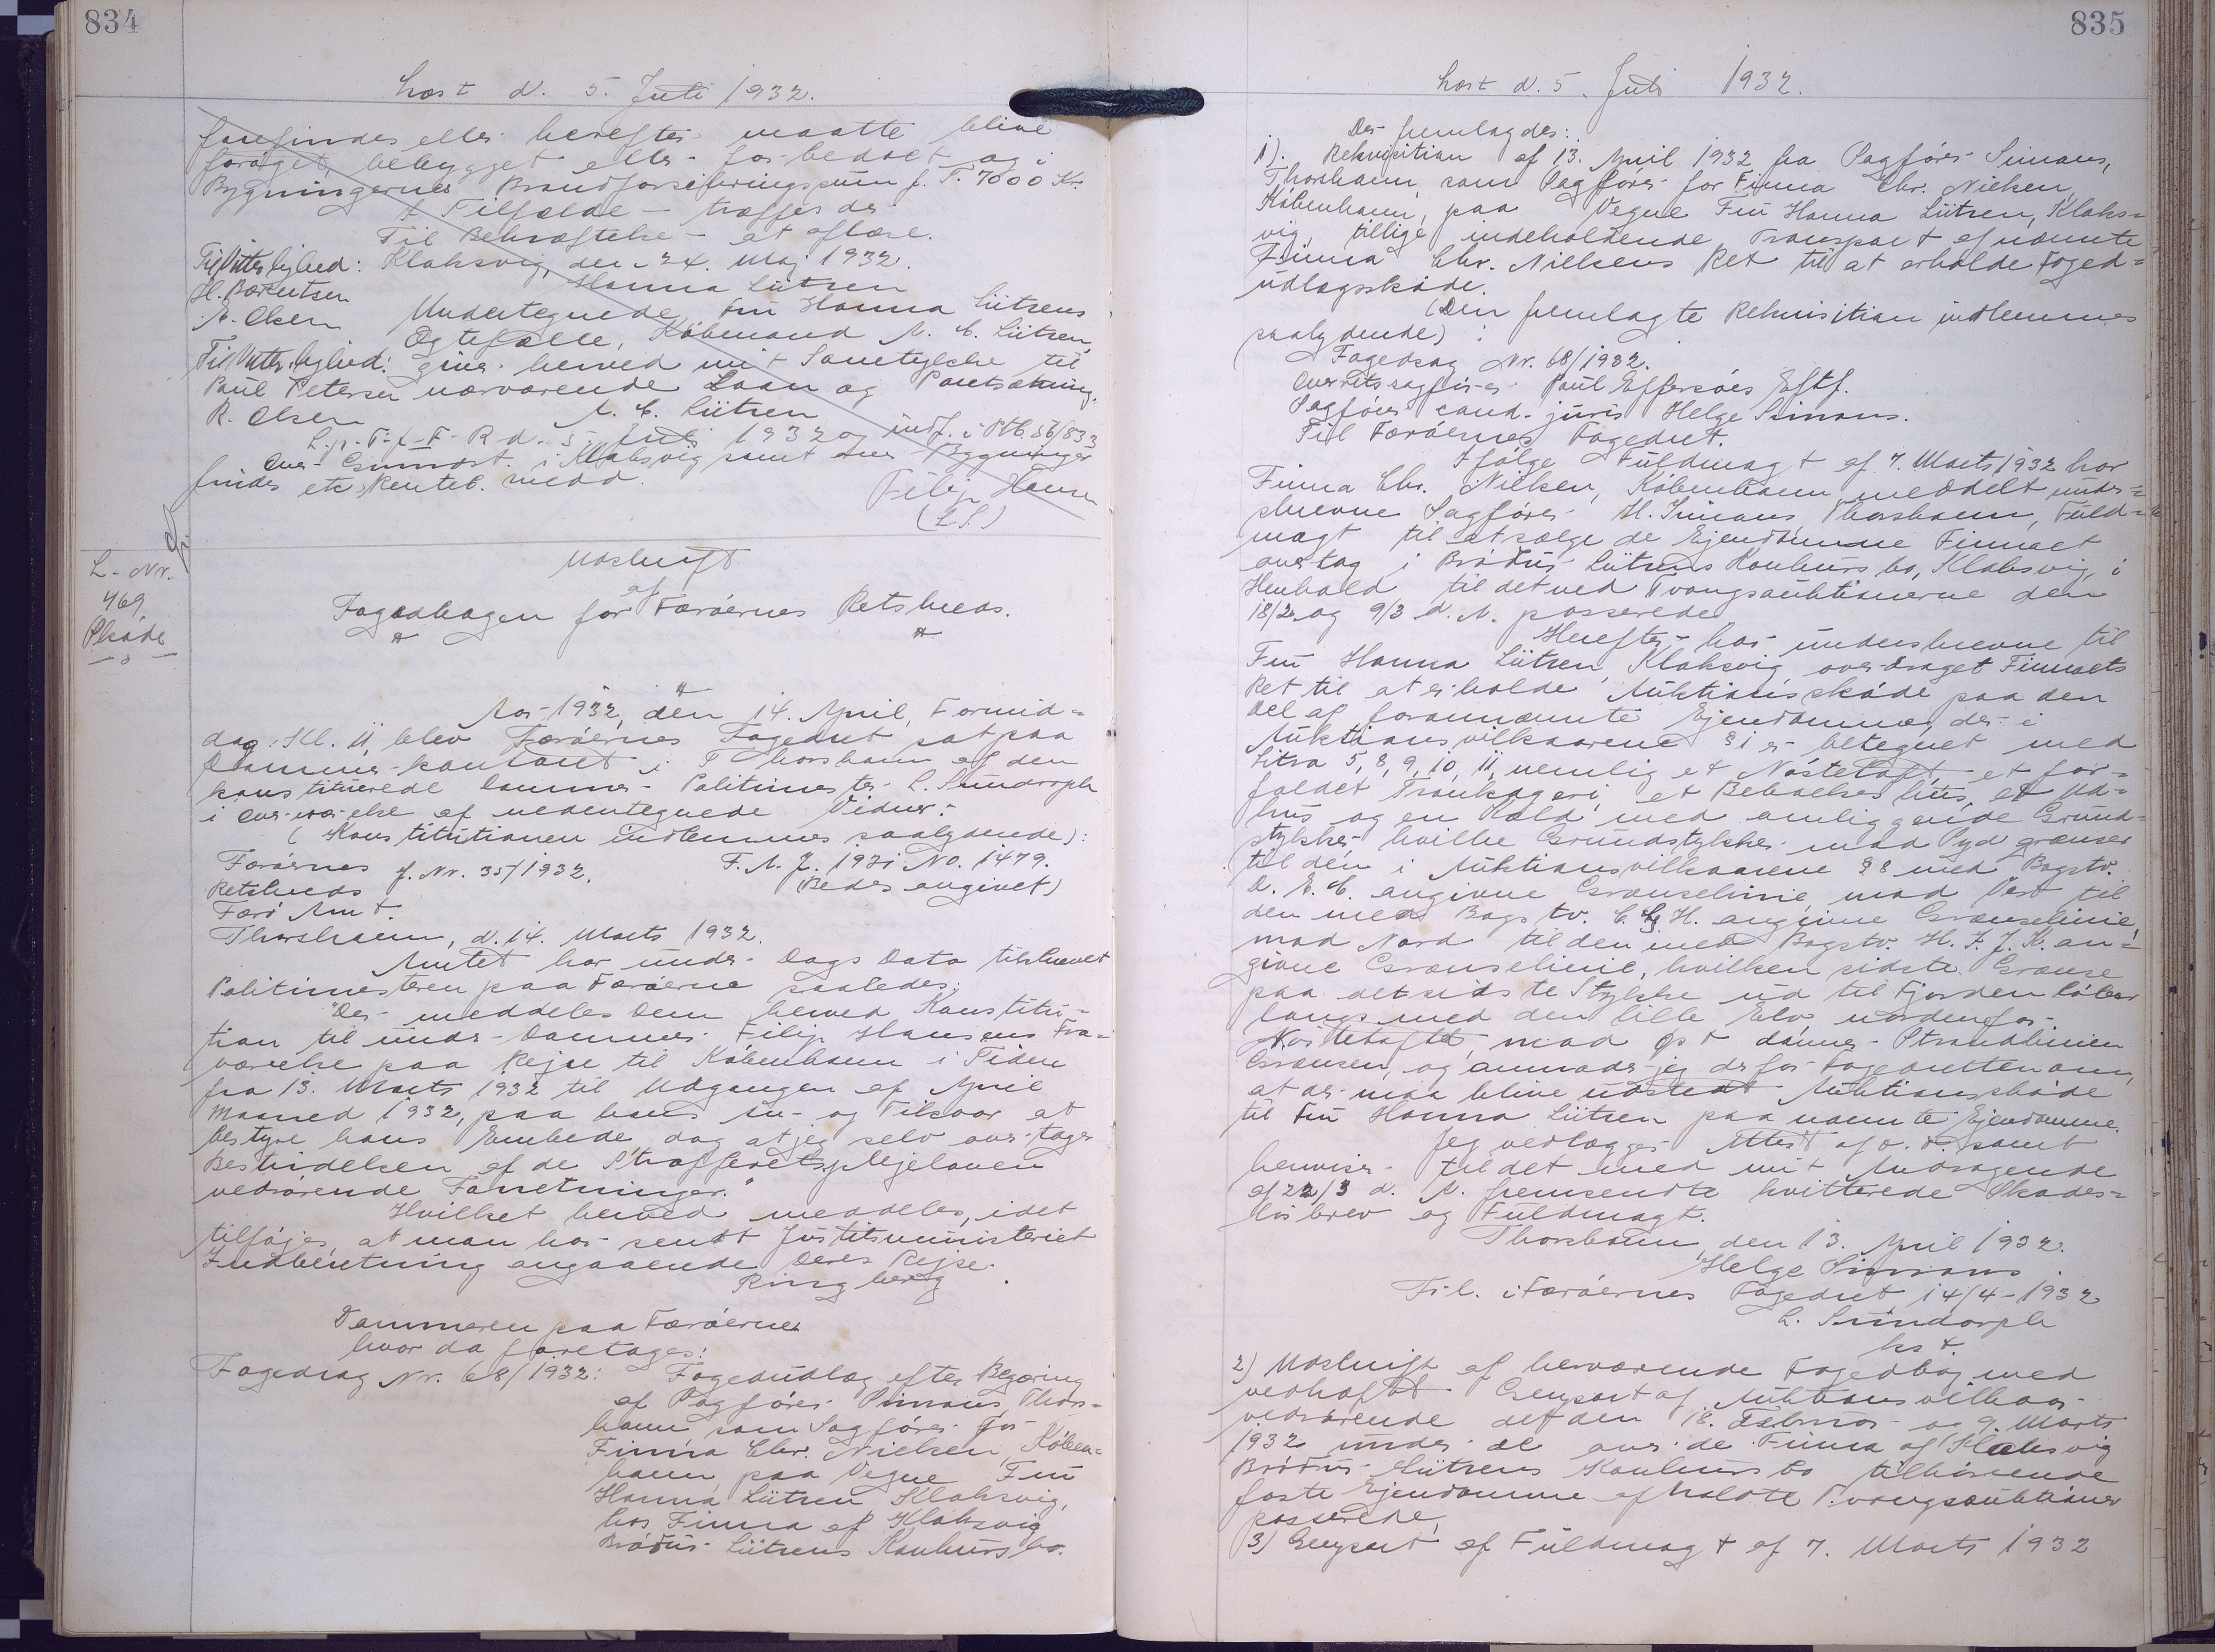 834
Læst d. 5. Juli 1932.
forefindes eller herefter maatte blive
forøget, bebygget eller forbedret og i
Bygningernes Brandforsikringssum p. T. 7000 Kr.
i Tilfælde – træffer de
Til Bekræftelse – at oplæse.
Til Vitterlighed: Klaksvig, den 24. Maj 1932.
H. Bærentsen Hanna Lützen
A. Olsen Undertegnede Fru Hanna Lützens
Ægtefælle, Købmand A. C. Lützen,
Til Vitterlighed: giver herved mit Samtykke til
Paul Petersen nærværende Laan og Pantsætning.
R. Olsen A. C. Lützen
L. p. T. f. F. R. d. 5. Juli 1932 og indf. i Ptb. S6/833
Over Grundst. i Klaksvig samt over Bygninger
findes etc Renteb. medd.
Filip Hansen
(L.S.)
L-Nr.
469
Skøde
Udskrift
af
Fogedbogen for Færøernes Retskreds.
Aar 1932, den 14. April, Formid=
dag Kl. 11, blev Færøernes Fogedret sat paa
Dommerkontoret i Thorshavn af den
konstituerede Dommer – Politimester L. Sundorph
i Overværelse af undertegnede Vidner:
(Konstitutionen indlemmes saalydende):
Færøernes J. Nr. 35/1932. F. A. J. 1931 No. 1479.
Retskreds (Bedes angivet)
Færø Amt.
Thorshavn, d. 14. Marts 1932.
Amtet har under Dags Dato tilskrevet
Politimesteren paa Færøerne saaledes:
"Der meddeles Dem herved Konstitu=
tion til under Dommer Filip Hansens Fra=
værelse paa Rejse til København i Tiden
fra 13. Marts 1932 til Udgangen af April
Maaned 1932, paa hans An- og Tilsvar at
bestyre hans Embede, dog at jeg selv overtager
Bestridelsen af de Strafferetsplejeloven
vedrørende Forretninger."
Hvilket herved meddeles, idet
tilføjes, at man har sendt Justitsministeriet
Indberetning angaaende Deres Rejse.
Ringberg
Dommeren paa Færøerne
hvor da foretages:
Fogedsag Nr. 68/1932: Fogedudlæg efter Begæring
af Sagfører Simans, Thors=
havn som Sagfører for
Firma Chr. Nielsen, Køben=
havn paa Vegne Fru
Hanna Lützen, Klaksvig,
hos Firma af Klaksvig
Brødur Lützens Konkursbo.
835
Læst d. 5. Juli 1932.
Der fremlagdes:
1). Rekvisition af 13. April 1932 fra Sagfører Simans,
Thorshavn, som Sagfører for Firma Chr. Nielsen,
København, paa Vegne Fru Hanna Lützen, Klaks=
vig, tillige indeholdende Transport af nævnte
Firma Chr. Nielsens Ret til at erholde Foged=
udlægsskøde.
(Den fremlagte Rekvisition indlemmes
saalydende) :
Fogedsag Nr. 68/1932.
Overretssagfører Poul Effersøes Eftf.
Sagfører cand. juris Helge Simans.
Til Færøernes Fogedret.
Ifølge Fuldmagt af 7. Marts 1932 har
Firma Chr. Nielsen, København meddelt under=
skrevne Sagfører H. Simans, Thorshavn, Fuld=
magt til at sælge de Ejendomme Firmaet
overtog i Brødur Lützens Konkursbo, Klaksvig, i
Henhold til det ved Tvangsauktionerne den
18/2 og 9/3 d. A. passerede.
Herefter har underskrevne til
Fru Hanna Lützen, Klaksvig overdraget Firmaets
Ret til at erholde Auktionsskøde paa den
Del af forannævnte Ejendomme, der i
Auktionsvilkaarene § 1 er betegnet med
Litra 5, 8, 9, 10, 11, nemlig et Nøstetoft, et for=
faldet Trankogeri, et Beboelseshus, et Ud=
hus og en Kold med omliggende Grund=
stykker hvilke Grundstykker mod Syd grænser
til den i Auktionsvilkaarene § 8 med Bogstv.
D. E. C. angivne Grænselinie, mod Vest til
den med Bogstv. C. G. H. angivne Grænselinie,
mod Nord til den med Bogstv. H. I. J. K. an=
givne Grænselinie, hvilken sidste Grænse
paa det sidste Stykke ud til Fjorden løber
langs med den lille Elv nordenfor
Nøstetoftet, mod Øst danner Strandlinien
Grænsen, og anmoder jeg derfor Fogedretten om,
at der maa blive udstedt Auktionsskøde
til Fru Hanna Lützen paa nævnte Ejendomme.
Jeg vedlægger Attest af o. D. samt
henviser til det med mit Andragende
af 22/3 d. A. fremsendte kvitterede Skades=
løsbrev og Fuldmagt.
Thorshavn, den 13. April 1932.
Helge Simans
Frl. i Færøernes Fogedret 14/4 – 1932
L. Sundorph
kst.
2) Udskrift af herværende Fogedbog med
vedhæftet Genpart af Auktionsvilkaar
vedrørende det den 18. Februar og 9. Marts
1932 under de over de Firma af Klaksvig
Brødur Lützens Konkursbo tilhørende
faste Ejendomme afholdte Tvangsauktioner
passerede,
3) Genpart af Fuldmagt af 7. Marts 1932